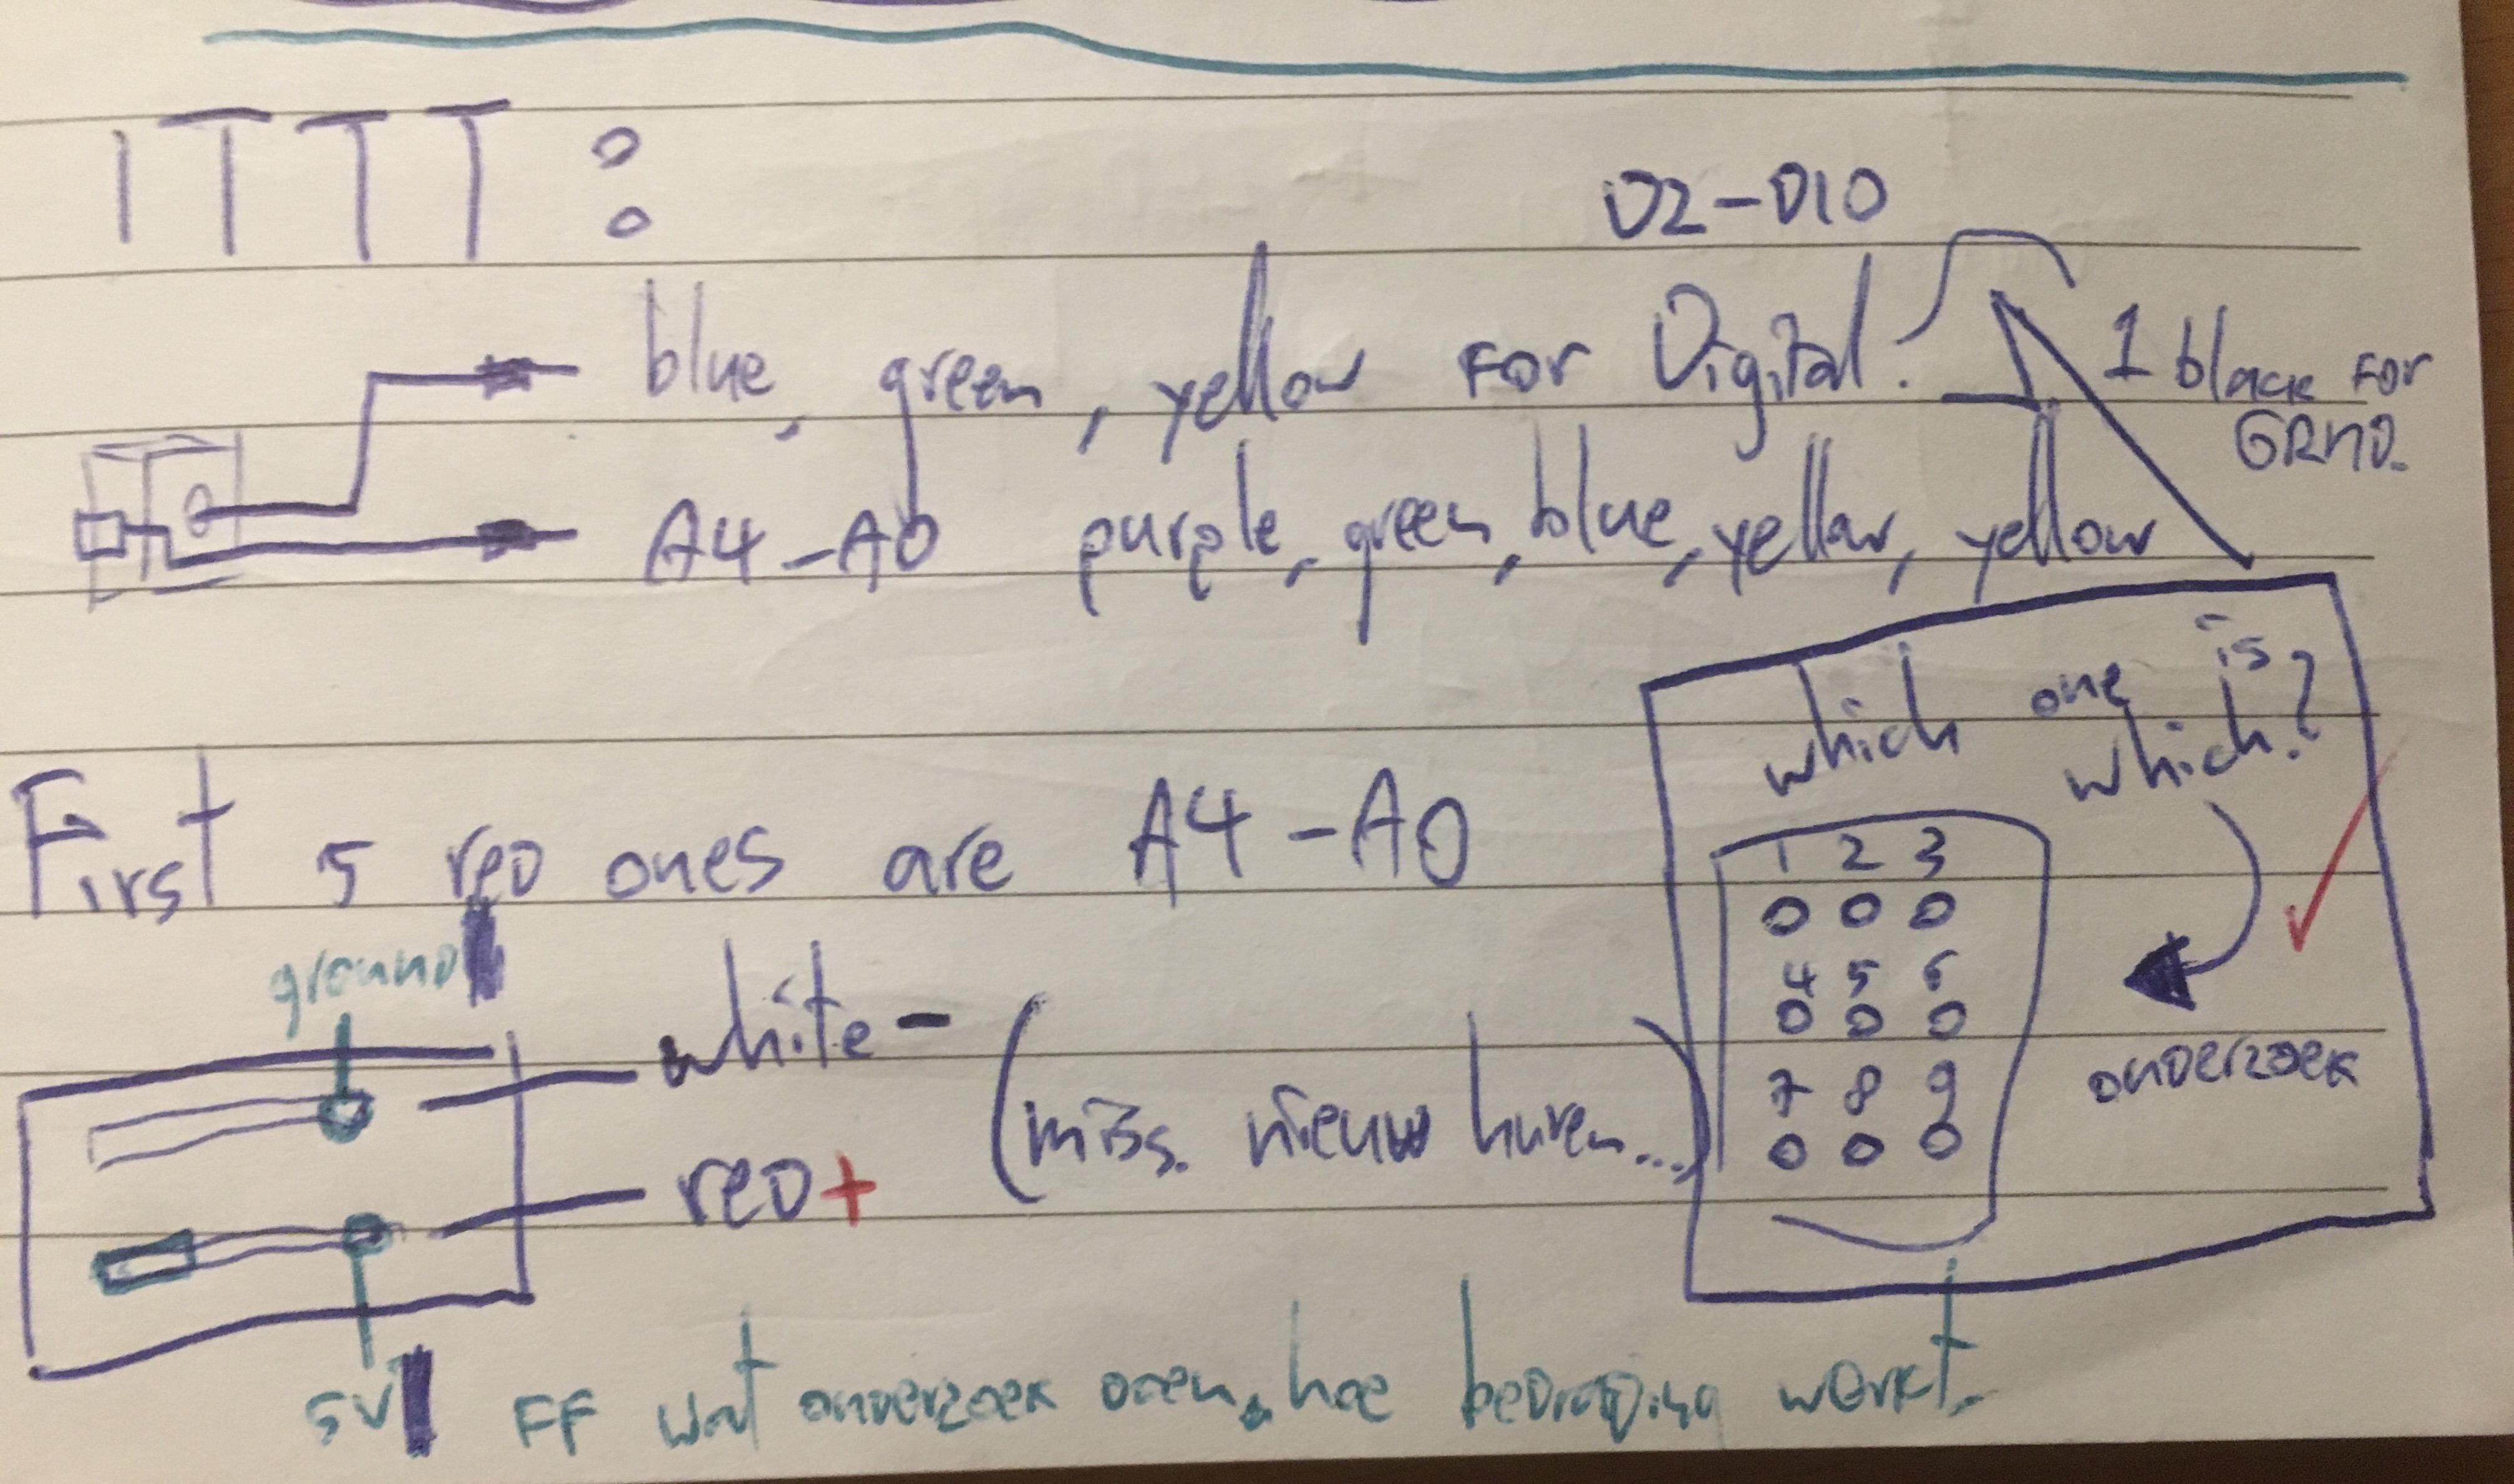 ITTT :
D2-D10
blue, green, yellow for Digital.
1 black for
GRND.
A4-A0 purple, green, blue, yellow, yellow
which one is
which?
First 5 red ones are A4-A0
1 2 3
0 0 0
4 5 6
0 0 0
7 8 9
0 0 0
onderzoek
ground
white -
(miss. nieuw huren...)
red +
5V
FF wat onderzoek doen, hoe bedrading werkt.